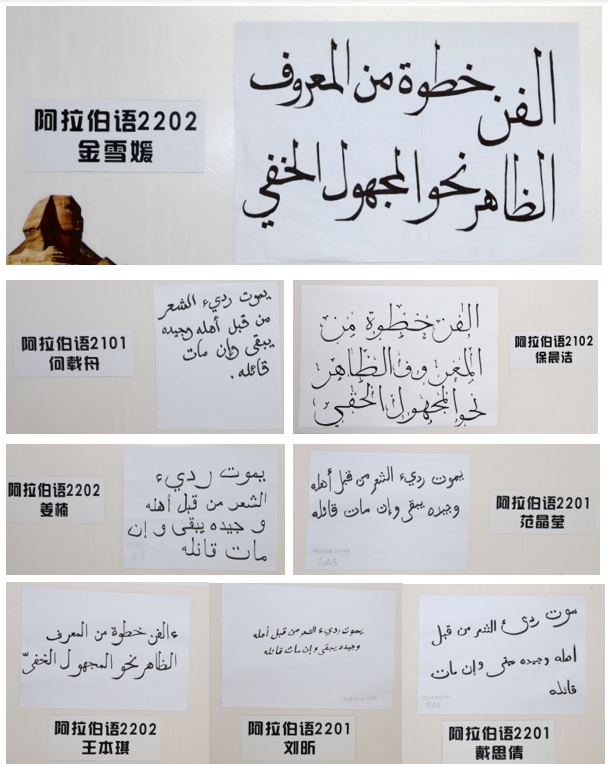 阿拉伯语2202
金雪媛
الفن خطوة من المعروف
الظاهر نحو المجهول الخفي
阿拉伯语2101
何载舟
يموت رديء الشعر
من قبل أهله وجيده
يبقى وإن مات
قائله.
الفن خطوة من
المعروف الظاهر
نحو المجهول الخفي
阿拉伯语2102
徐晨洁
阿拉伯语2202
姜楠
يموت رديء
الشعر من قبل أهله
و جيده يبقى و إن
مات قائله
يموت رديء الشعر من قبل أهله
وجيده يبقى وإن مات قائله
阿拉伯语2201
范晶莹
الفن خطوة من المعرف
الظاهر نحو المجهول الخفيّ
阿拉伯语2202
王本琪
يموت رديء الشعر من قبل أهله
وجيده يبقى وإن مات قائله
阿拉伯语2201
刘昕
موت ردئ الشعر من قبل
أهله وجيده يبقى وإن مات
قائله
阿拉伯语2201
戴思倩